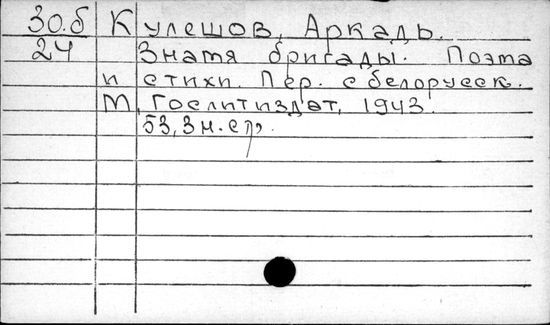 30.б Кулешов, Аркадь.
24 Знатя бригады. Поэта
и стихи. Пер. с белорусск.
М, Гослитиздат, 1943.
53, 3 н. стр.